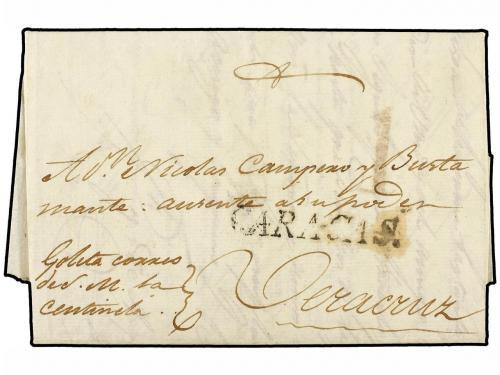 A Dn. Nicolas Campero y Busta
mante: ausente a su poder
CARACAS.
Goleta correo
de S. M. la
Centinela.
Veracruz